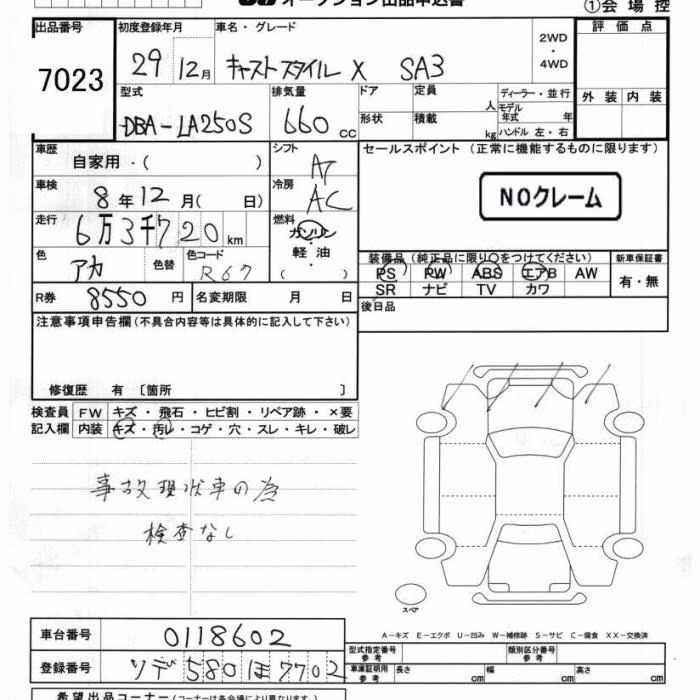 オークション出品申込書
①会場控
出品番号
7023
初度登録年月
29 12月
車名・グレード
キャストスタイル X SA3
2WD
・
4WD
評価点
外装 内装
型式
DBA-LA250S
排気量
660 cc
ドア
形状
定員
人
積載
kg
ディーラー・並行
モデル年式 年
ハンドル 左・右
車歴
自家用・( )
シフト
AT
車検
8年12月( 日)
冷房
AC
走行
6万3千720 km
燃料
ガソリン
軽油
( )
色
アカ
色替
色コード
R67
R券
8550 円
名変期限 月 日
セールスポイント (正常に機能するものに限ります)
NOクレーム
装備品 (純正品に限り○をつけてください)
PS PW ABS エアB AW
SR ナビ TV カワ
新車保証書
有・無
後日品
注意事項申告欄(不具合内容等は具体的に記入して下さい)
修復歴 有 〔箇所 〕
検査員
記入欄
FW キズ・飛石・ヒビ割・リペア跡・×要
内装 キズ・汚レ・コゲ・穴・スレ・キレ・破レ
事故現状車の為
検査なし
スペア
A-キズ E-エクボ U-凹み W-補修跡 S-サビ C-腐食 XX-交換済
車台番号
0118602
登録番号
ソデ 580 ほ 7702
型式指定番号
参考
類別区分番号
参考
車庫証明用
参考
長さ cm
幅 cm
高さ cm
希望出品コーナー(コーナーは各会場により異なります)